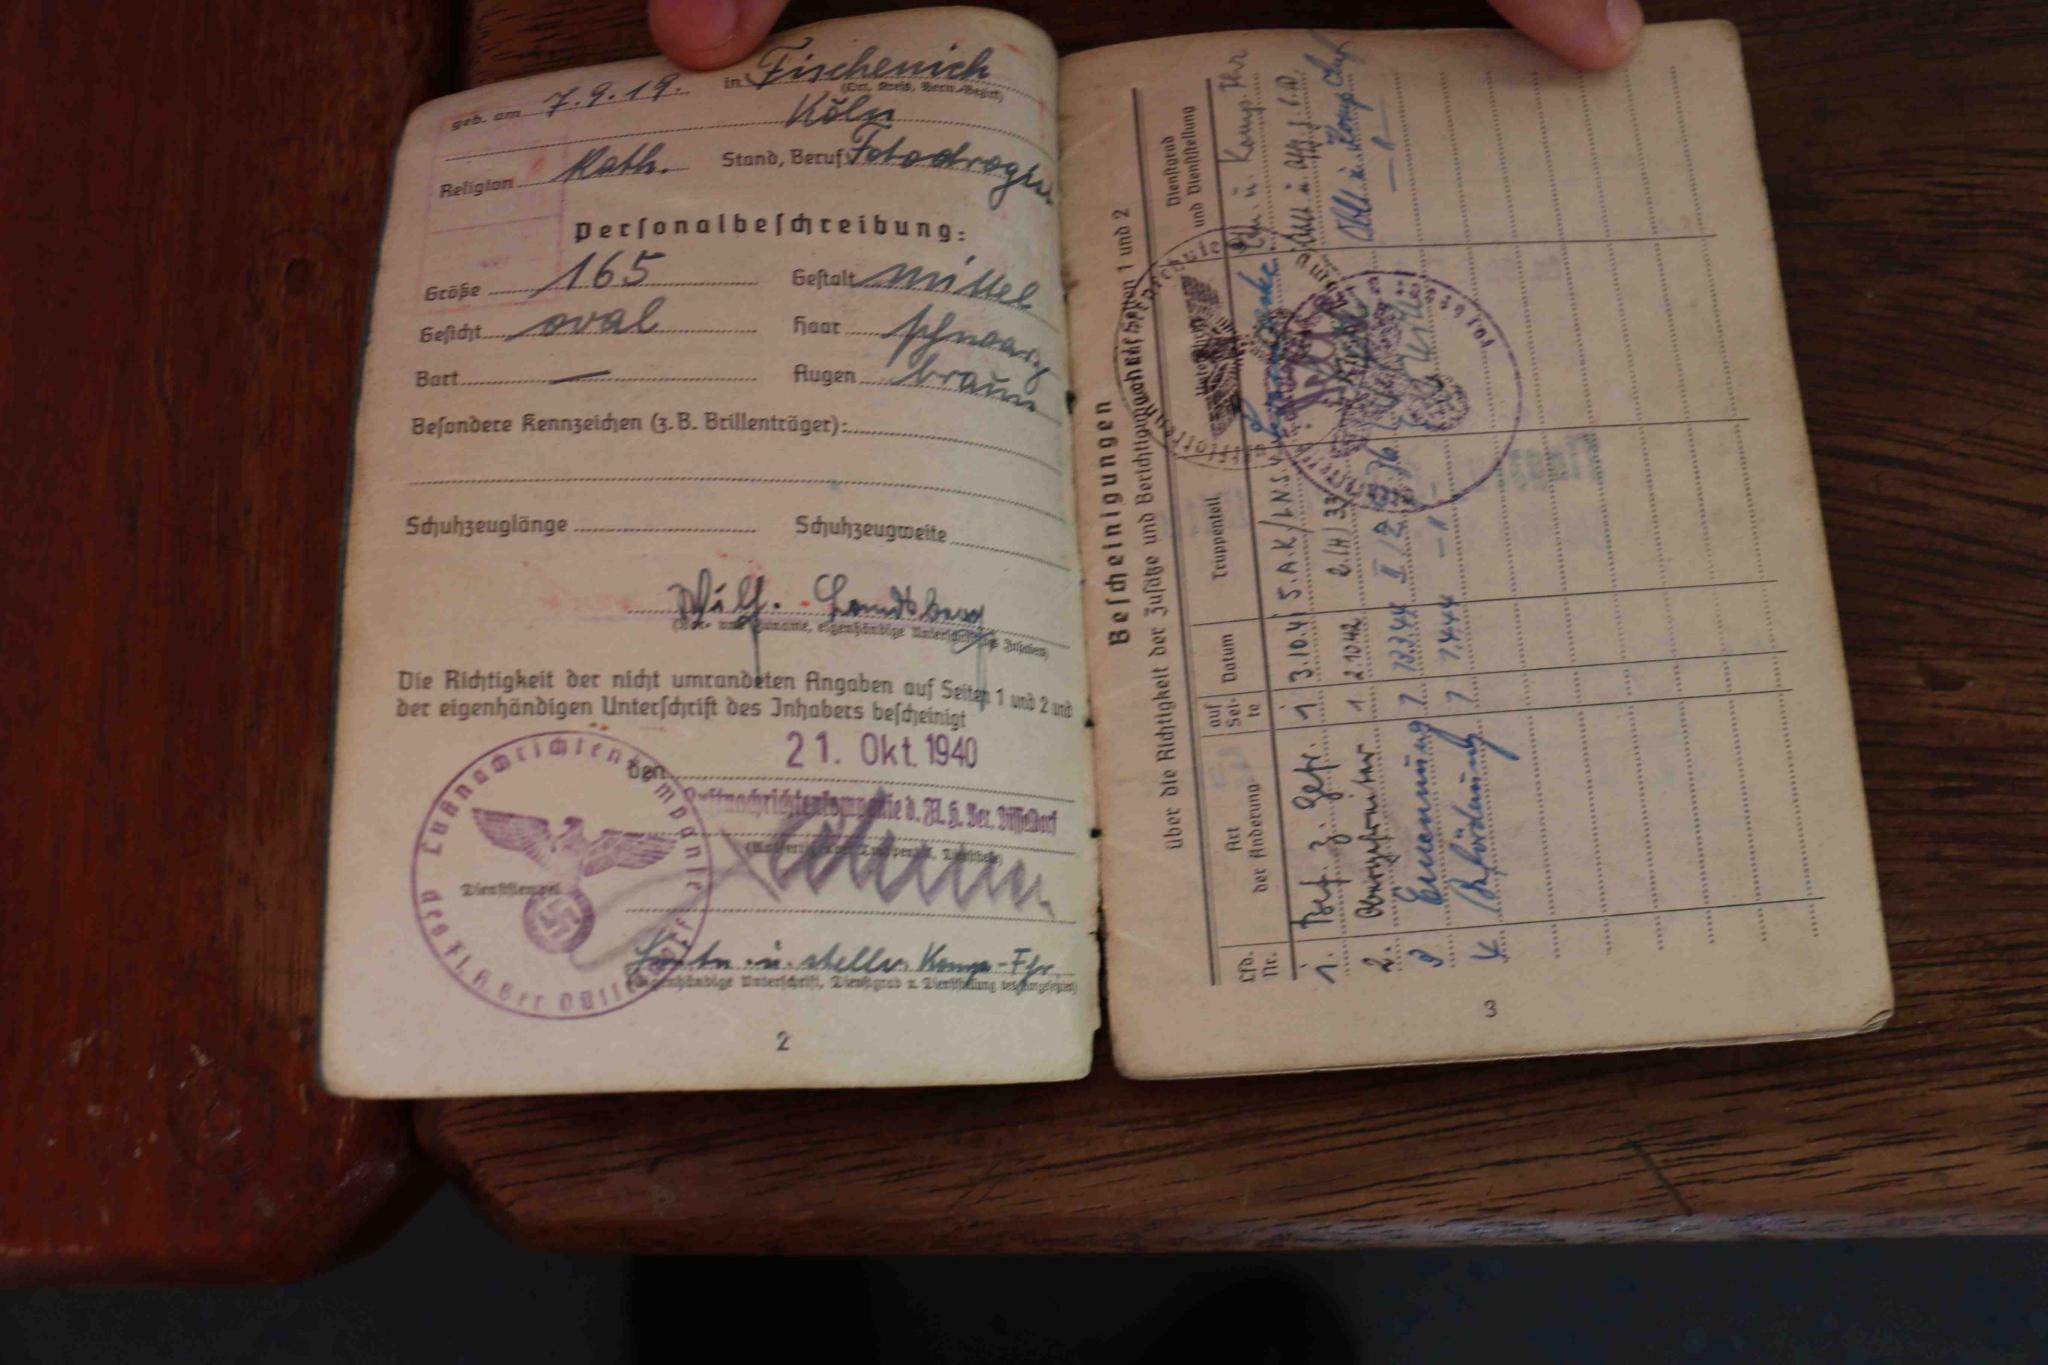 geb. am 7.9.19. in Fischenich
(Ort, Kreis, Verw.-Bezirk)
Köln
Religion Kath. Stand, Beruf Fotodrogist
Personalbeſchreibung:
Größe 165 Geſtalt mittel
Geſicht oval Haar schwarz
Bart — Augen braun
Beſondere Kennzeichen (z. B. Brillenträger):
Schuhzeuglänge Schuhzeugweite
Wilh. Landsberg
(Vor- und Zuname, eigenhändige Unterſchrift des Inhabers)
Die Richtigkeit der nicht umrandeten Angaben auf Seiten 1 und 2 und
der eigenhändigen Unterſchrift des Inhabers beſcheinigt
den 21. Okt. 1940
Luftnachrichtenkompanie d. Fl. H. Ber. Düſſeldorf
Dienſtſtempel
Luftnachrichtenkompanie der Fl. H. Ber. Düſſeldorf
u. stellv. Komp-Fhr
(Eigenhändige Unterſchrift, Dienſtgrad u. Dienſtſtellung des Vorgeſetzten)
2
Beſcheinigungen
über die Richtigkeit der Zuſätze und Berichtigungen auf Seiten 1 und 2
Lfd. Nr. Art der Änderung auf Sei-te Datum Truppenteil Dienſtgrad und Dienſtſtellung
1. Bef. z. Gefr. 1 3.10.41 5.A.K/LNS. u. Komp. Fhr
2. Obergefreiter 1 2.10.42
3 Ernennung 7 13.3.44
4 Beförderung 7 1.4.44 – " – – " –
3